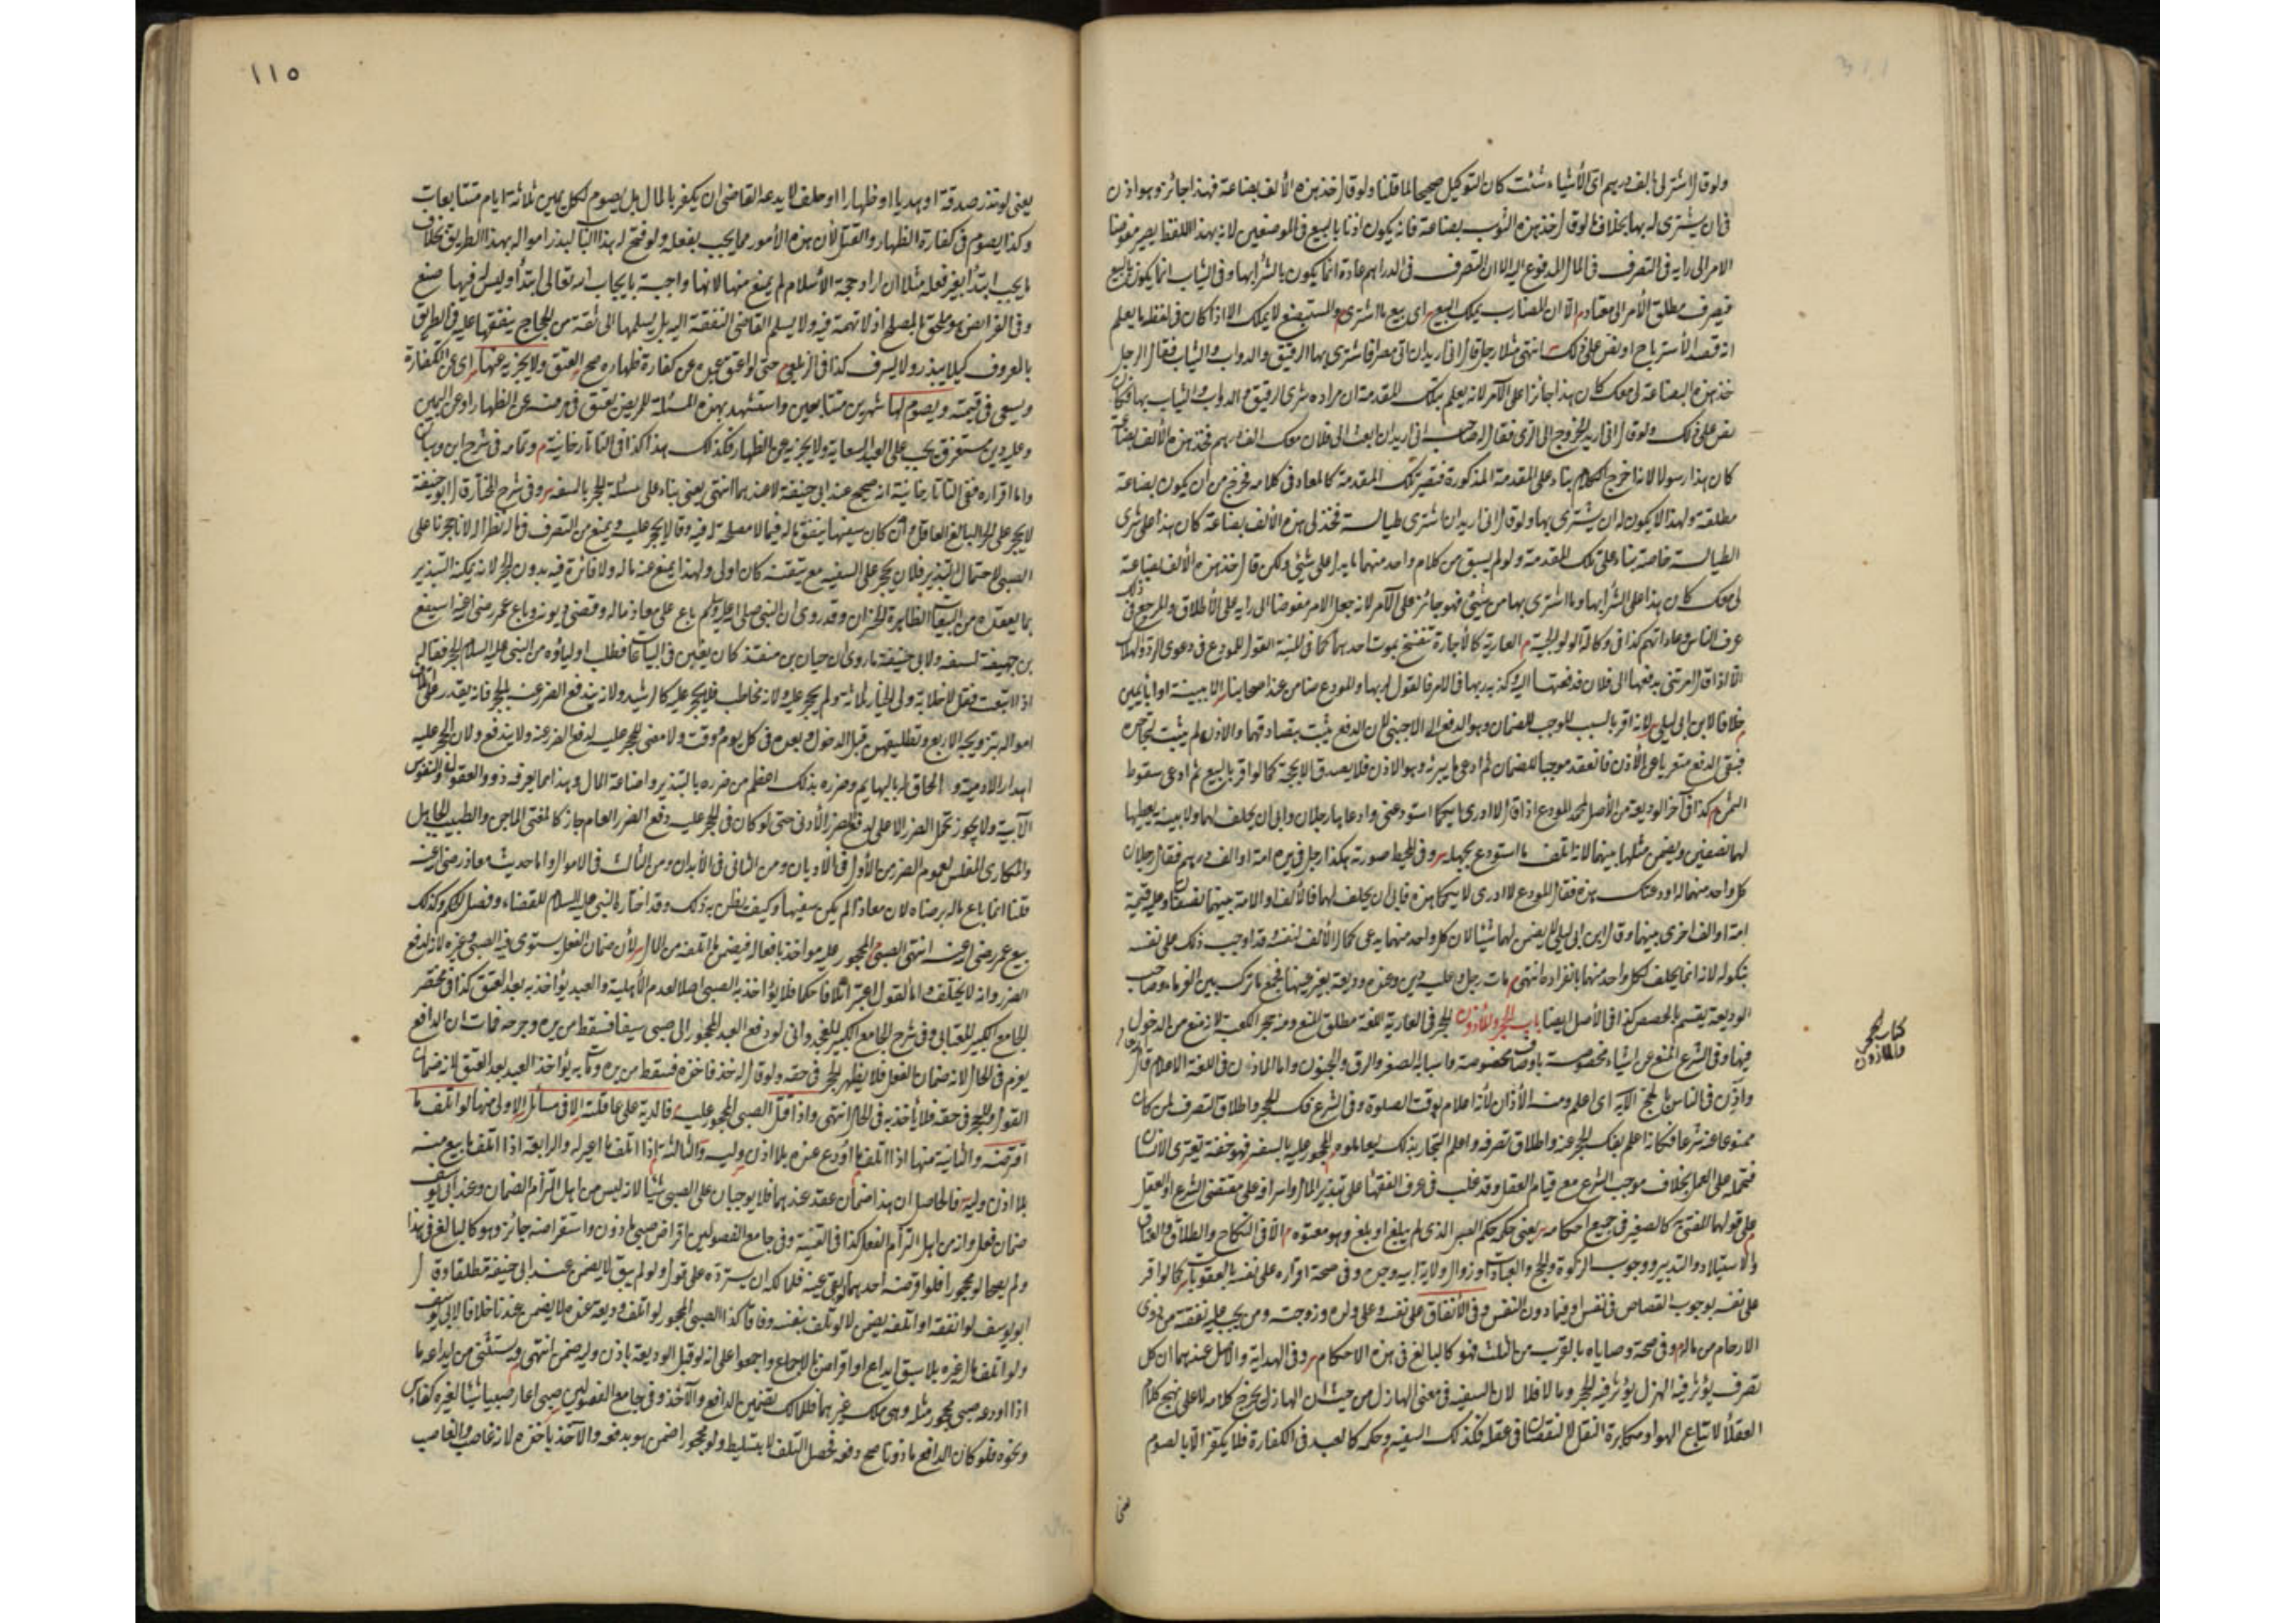 ولو قال اشتر لى بالف درهم اى الأشياء شئت كان التوكيل صحيحا لما قلنا ولو قال خذ هذه الألف بضاعة فهذا جائز وهو اذن
فى ان يشترى له بها بخلاف ما لو قال خذ هذه الثوب بضاعة فانه يكون اذنا بالبيع فى الموضعين لانه بهذا اللفظ يصير مفوضا
الامر الى رايه فى التصرف فى المال المدفوع اليه الا ان التصرف فى الدراهم عادة انما يكون بالشراء بها وفى الثياب انما يكون بالبيع
فيصرف مطلق الأمر الى معتاد الا ان المضارب يملك البيع اى بيع ما اشترى والمستبضع لا يملك الا اذا كان فى لفظه ما يعلم
انه قصد الأسترباح او نص على ذلك انتهى مثلا رجل قال انى اريد ان اتى مصر اشترى بها الرقيق والدواب والثياب فقال الرجل
خذ هذه البضاعة لى معك كان هذا جائزا على الآمر لانه يعلم بتلك المقدمة ان مراده شرى الرقيق والدواب والثياب بها فكان
نص على ذلك ولو قال انى اريد الخروج الى الرى فقال له صاحبه انى اريد ان ابعث الى فلان معك الف درهم فخذ هذه الألف بضاعة
كان هذا رسولا لانه اخرج الكلام بناء على المقدمة المذكورة فتصير تلك المقدمة كالمعاد فى كلامه فخرج من ان يكون بضاعة
مطلقة ولهذا لا يكون له ان يشترى بها ولو قال انى اريد ان اشترى طيالسة فخذ لى هذه الألف بضاعة كان هذا على شرى
الطيالسة خاصة بناء على تلك المقدمة ولو لم يسبق من كلام واحد منهما ما يدل على شئ ولكن قال خذ هذه الألف بضاعة
لى معك كان هذا على الشراء بها وما اشترى بها من شئ فهو جائز على الآمر لانه جعل الامر مفوضا الى رايه على الأطلاق والمرجع فى ذلك
عرف الناس وعاداتهم كذا فى وكالة الولوالجية العارية كالأجارة تنفسخ بموت احدهما كما فى المنية القول للمودع فى دعوى الرد والهلاك
الا اذا قال امرتنى بدفعها الى فلان فدفعتها اليه وكذبه ربها فى الامر فالقول لربها والمودع ضامن عند اصحابنا الا ببينة او بايمين
خلافا لابن ابى ليلى لانه اقر بالسبب الموجب للضمان وهو الدفع الى الاجنبى لان الدفع يثبت بتصادقهما والاذن لم يثبت لجحوده
فبقى الدفع متعريا عن الأذن فانعقد موجبا للضمان ثم ادعى ما يبرئه وهو الاذن فلا يصدق الا بحجة كما لو اقر بالبيع ثم ادعى سقوط
الثمن كذا فى آخر الوديعة من الأصل لمحمد المودع اذا قال لا ادرى ايكما استودعنى وادعاها رجلان وابى ان يحلف لهما ولا بينة يعطيها
لهما نصفين ويضمن مثلها بينهما لانه اتلف ما استودع بجهله وفى المحيط صورته هكذا رجل فى يده امة او الف درهم فقال رجلان
كل واحد منهما له اودعتك هذه فقال المودع لا ادرى لايكما هذه فابى ان يحلف لهما فالألف او الامة بينهما نصفان وعليه قيمة
امة او الف اخرى بينهما وقال ابن ابى ليلى لا يضمن لهما شيئا لان كل واحد منهما يدعى كمال الألف لنفسه قد اوجب ذلك على نفسه
بنكوله لانه انما يحلف لكل واحد منهما بانفراده انتهى مات رجل وعليه دين وعنده وديعة بغير عينها فجميع ما ترك بين الغرماء وصاحب
الوديعة يقسم بالحصص كذا فى الأصل ايضا باب الحجر والمأذون الحجر فى العارية اللغة مطلق المنع ومنه حجر الكعبة لانه منع من الدخول
فيها وفى الشرع المنع عن اشياء مخصوصة باوصاف مخصوصة واسبابه الصغر والرق والجنون واما الماذون فى اللغة الاعلام قال
واذن فى الناس بالحج الآية اى اعلم ومنه الأذان لأنه اعلام بوقت الصلوة وفى الشرع فك الحجر واطلاق التصرف لمن كان
ممنوعا عنه شرعا فكانه اعلم بفك الحجر عنه واطلاق تصرفه واعلم التجار بذلك ليعاملوه المحجور عليه بالسفه فهو خفة تعترى الانسان
فتحمله على العمل بخلاف موجب الشرع مع قيام العقل وقد غلب فى عرف الفقهاء على تبذير المال واسرافه على مقتضى الشرع او العقل
على قولهما المفتى به كالصغير فى جميع احكامه يعنى حكمه حكم الصبى الذى لم يبلغ او بلغ وهو معتوه الا فى النكاح والطلاق والعتاق
والاستيلاد والتدبير ووجوب الزكوة والحج والعبادات وزوال ولاية ابيه وجده وفى صحة اقراره على نفسه بالعقوبات كما لو اقر
على نفسه بوجوب القصاص فى نفس او فيما دون النفس وفى الأنفاق على نفسه وعلى ولده وزوجته ومن يجب عليه نفقته من ذوى
الارحام من ماله وفى صحة وصاياه بالقرب من الثلث فهو كالبالغ فى هذه الاحكام وفى الهداية والأصل عندهما ان كل
تصرف يؤثر فيه الهزل يؤثر فيه الحجر وما لا فلا لان السفيه فى معنى الهازل من حيث ان الهازل يخرج كلامه لا على نهج كلام
العقلأ لاتباع الهوا ومكابرة العقل لا لنقصان فى عقله فكذلك السفيه وحكمه كالعبد فى الكفارة فلا يكفر الا بالصوم
يعنى
كتاب الحجر
والماذون
١١٥
يعنى لو نذر صدقة او هديا او ظهارا او حلف لا يدعه القاضى ان يكفر بالمال بل يصوم لكل يمين ثلاثة ايام متتابعات
وكذا يصوم فى كفارة الظهار والقتل لأن هذه الأمور مما يجب بفعله ولو فتح له هذا الباب لبذر امواله بهذا الطريق بخلاف
ما يجب ابتدأ بغير فعله مثلا ان اراد حجة الأسلام لم يمنع منها لانها واجبة بايجاب الله تعالى ابتدأ وليس له فيها صنع
وفى الفرائض هو ملحق بالمصلح اذ لا تهمة فيه ولا يسلم القاضى النفقة اليه بل يسلمها الى ثقة من الحجاج ينفقها عليه فى الطريق
بالمعروف كيلا يبذر ولا يسرف كذا فى الزيلعى حتى لو اعتق عبده عن كفارة ظهاره صح العتق ولا يجزيه عنها اى عن الكفارة
ويسعى فى قيمته ويصوم لها شهرين متتابعين واستشهد بهذه المسئلة المريض يعتق فى مرضه عن الظهار او عن اليمين
وعليه دين مستغرق يجب على العبد السعاية ولا يجزيه عن الظهار فكذلك هذا كذا فى التاتارخانية وتمامه فى شرح ابن وهبان
واما اقراره ففى التاتارخانية انه صحيح عند ابى حنيفة لا عندهما انتهى يعنى بناء على مسئلة الحجر بالسفه وفى شرح المختار قال ابو حنيفة
لا يحجر على الحر البالغ العاقل وان كان سفيها ينفق ماله فيما لا مصلحة له فيه وقالا يحجر عليه ويمنع من التصرف فى ماله نظرا له لانا حجرنا على
الصبى لاحتمال التبذير فلان يحجر على السفيه مع تيقنه كان اولى ولهذا يمنع عنه ماله ولا فائدة فيه بدون الحجر لانه يمكنه التبذير
بما يعقده من البياعات الظاهرة الخسران وقد روى ان النبى صلى الله عليه وسلم باع على معاذ ماله وقضى ديونه وباع عمر رضى الله عنه اسيفع
بن جهينة لسفهه ولابى حنيفة ما روى ان حبان بن منقذ كان يغبن فى البياعات فطلب اولياؤه من النبى عليه السلام الحجر فقال له
اذا ابتعت فقل لا خلابة ولى الخيار ثلاثة ولم يحجر عليه ولانه مخاطب فلا يحجر عليه كالرشيد ولانه لا يندفع الضرر عنه بالحجر فانه يقدر على اتلاف
امواله بتزويجه الاربع وتطليقهن قبل الدخول وبعده فى كل يوم ووقت ولا معنى للحجر عليه لدفع الضرر عنه ولا يندفع ولان الحجر عليه
اهدار لادميته والحاق له بالبهايم وضرره بذلك اعظم من ضرره بالتبذير واضاعة المال وهذا مما يعرفه ذوو العقول والنفوس
الآبية ولا يجوز تحمل الضرر الاعلى لدفع الضرر الأدنى حتى لو كان فى الحجر عليه دفع الضرر العام جاز كالمفتى الماجن والطبيب الجاهل
والمكارى المفلس لعموم الضرر من الأول فى الأديان ومن الثانى فى الأبدان ومن الثالث فى الاموال واما حديث معاذ رضى الله عنه
قلنا انما باع ماله برضاه لان معاذا لم يكن سفيها وكيف يظن به ذلك وقد اختاره النبى عليه السلام للقضاء وفصل الحكم وكذلك
بيع عمر رضى الله عنه انتهى الصبى المحجور عليه مواخذ بافعاله فيضمن ما اتلفه من المال لأن ضمان الفعل يستوى فيه الصبى وغيره لانه لدفع
الضرر وانه لا يختلف واما القول اعتبر اتلافا حكما فلا يؤاخذ به الصبى اصلا لعدم الأهلية والعبد يؤاخذ به بعد العتق كذا فى مختصر
الجامع الكبير للعتابى وفى شرح الجامع الكبير للخجندى وانى لو دفع العبد المحجور الى صبى سيفا فسقط من يده وجرحه فمات ان الدافع
يغرم فى الحال لانه ضمان بالفعل فلا يظهر الحجر فى حقه ولو قال له خذ فاخذه فسقط من يده ومات به يؤاخذ العبد بعد العتق لانه ضمان
القول والحجر فى حقه فلا يأخذ به فى الحال انتهى واذا قتل الصبى المحجور عليه فالدية على عاقلته الا فى مسائل الاولى منها لو اتلف ما
اقترضه والثانية منها اذا اتلف ما اودع عنده بلا اذن وليه والثالثة اذا اتلف ما اعير له والرابعة اذا اتلف ما بيع منه
بلا اذن وليه فالحاصل ان هذا ضمان عقد عندهما فلا يوجبان على الصبى شيئا لانه ليس من اهل التزام الضمان وعند ابى يوسف
ضمان فعل وانه من اهل التزام الفعل كذا فى القنية وفى جامع الفصولين اقراض صبى مأذون واستقراضه جائز وهو كالبالغ فى هذا
ولم يصحا لو محجورا فلو اقرضه احدهما لو بقى عينه فلمالكه ان يسترده على قول ولو لم يبق لا يضمن عند ابى حنيفة مطلقا وقال
ابو يوسف لو انفقه او اتلفه يضمن لا لو تلف بنفسه وفاقا كذا الصبى المحجور لو اتلف وديعة عنده لا يضمن عندنا خلافا لابى يوسف
ولو اتلف مال غيره بلا سبق ايداع او اقراض بالاجماع واجمعوا على انه لو قبل الوديعة باذن وليه ضمن انتهى ويستثنى من ايداعه ما
اذا اودعه صبى محجور مثله وهى ملك غيرهما فللمالك تضمين الدافع والآخذ وفى جامع الفصولين صبى اعار صبيا شيئا لغيره كفأس
ونحوه فلو كان الدافع ماذونا صح دفعه فحصل التلف لا بتسليط ولو محجورا ضمن هو بدفعه والآخذ باخذه لانه غاصب والغاصب